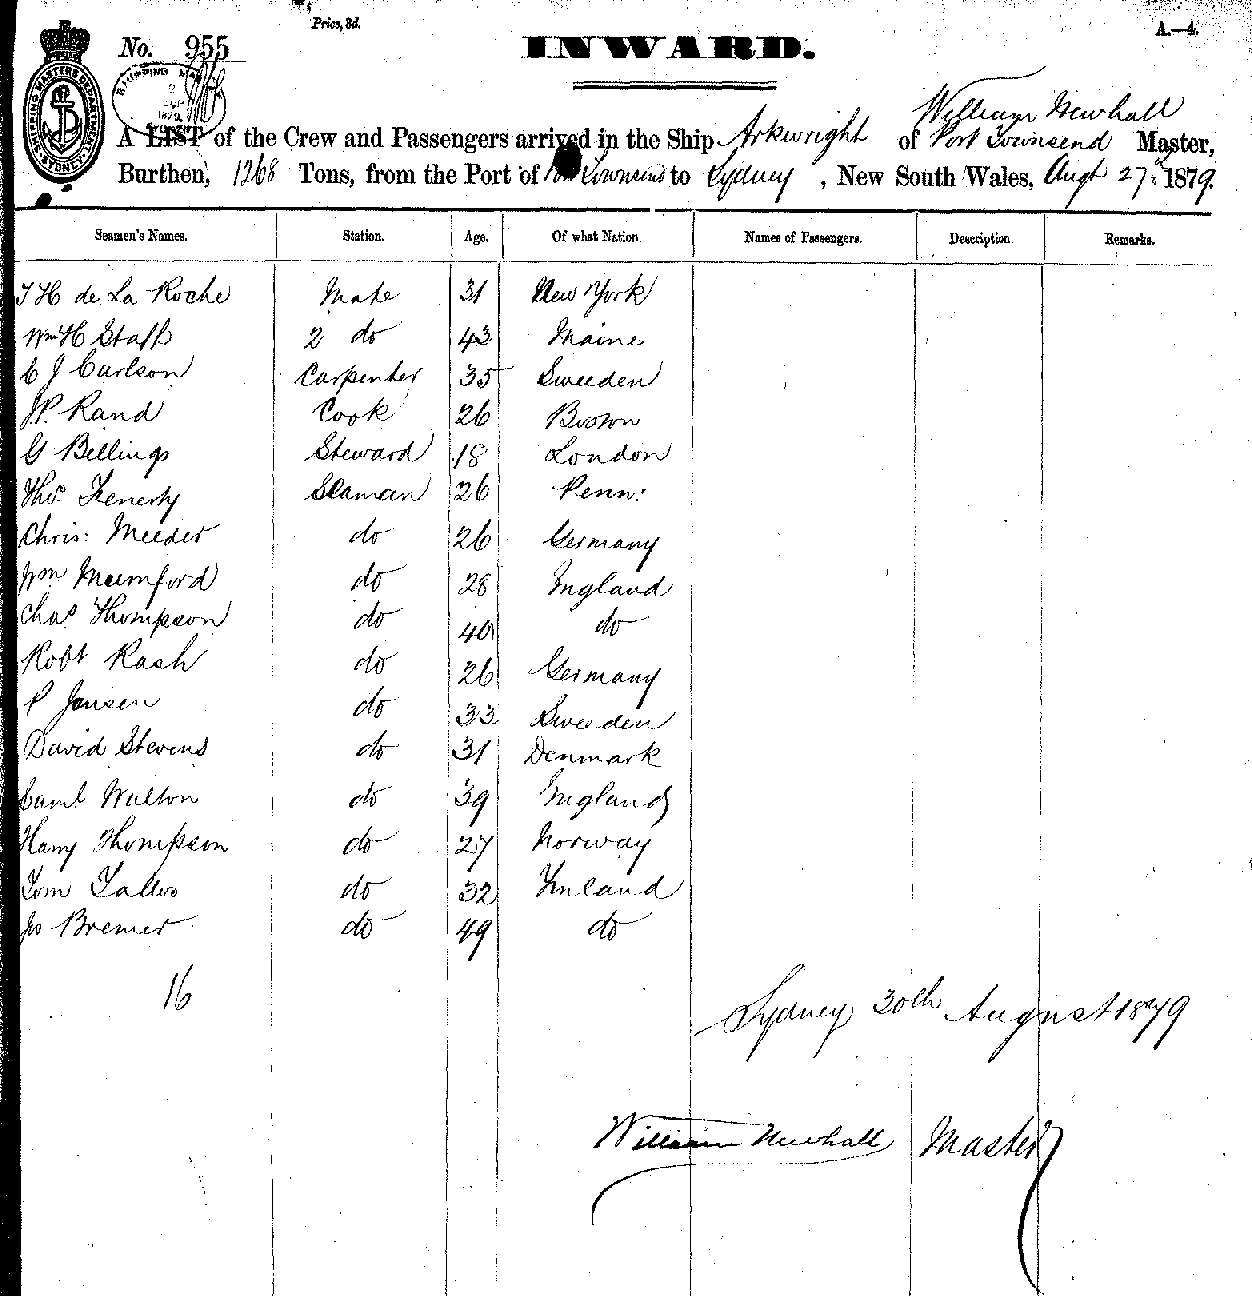 Price, 3d.
A.—4.
No. 955
INWARD.
SHIPPING MASTERS DEPARTMENT SYDNEY
SHIPPING MAS
1879
William Newhall
A LIST of the Crew and Passengers arrived in the Ship Arkwright of Port Townsend Master,
Burthen, 1268 Tons, from the Port of Port Townsend to Sydney, New South Wales, Augt 27th 1879.
Seamen's Names. Station. Age. Of what Nation. Names of Passengers. Description. Remarks.
J H de La Roche Mate 31 New York
Wm H Stafs 2 do 43 Maine
C J Carlson Carpenter 35 Sweeden
J P. Rand Cook 26 Boston
G Billings Steward 18 London
Thos Fenerty Seaman 26 Penn:
Chris: Meeder do 26 Germany
Wm Mumford do 28 England
Chas Thompson do 40 do
Robt Rash do 26 Germany
P Jensen do 33 Sweeden
David Stevens do 31 Denmark
Walton do 39 England
Harry Thompson do 27 Norway
Tom do 32 Finland
Jno Bremer do 49 do
16
Sydney 30th August 1879
William Newhall Master